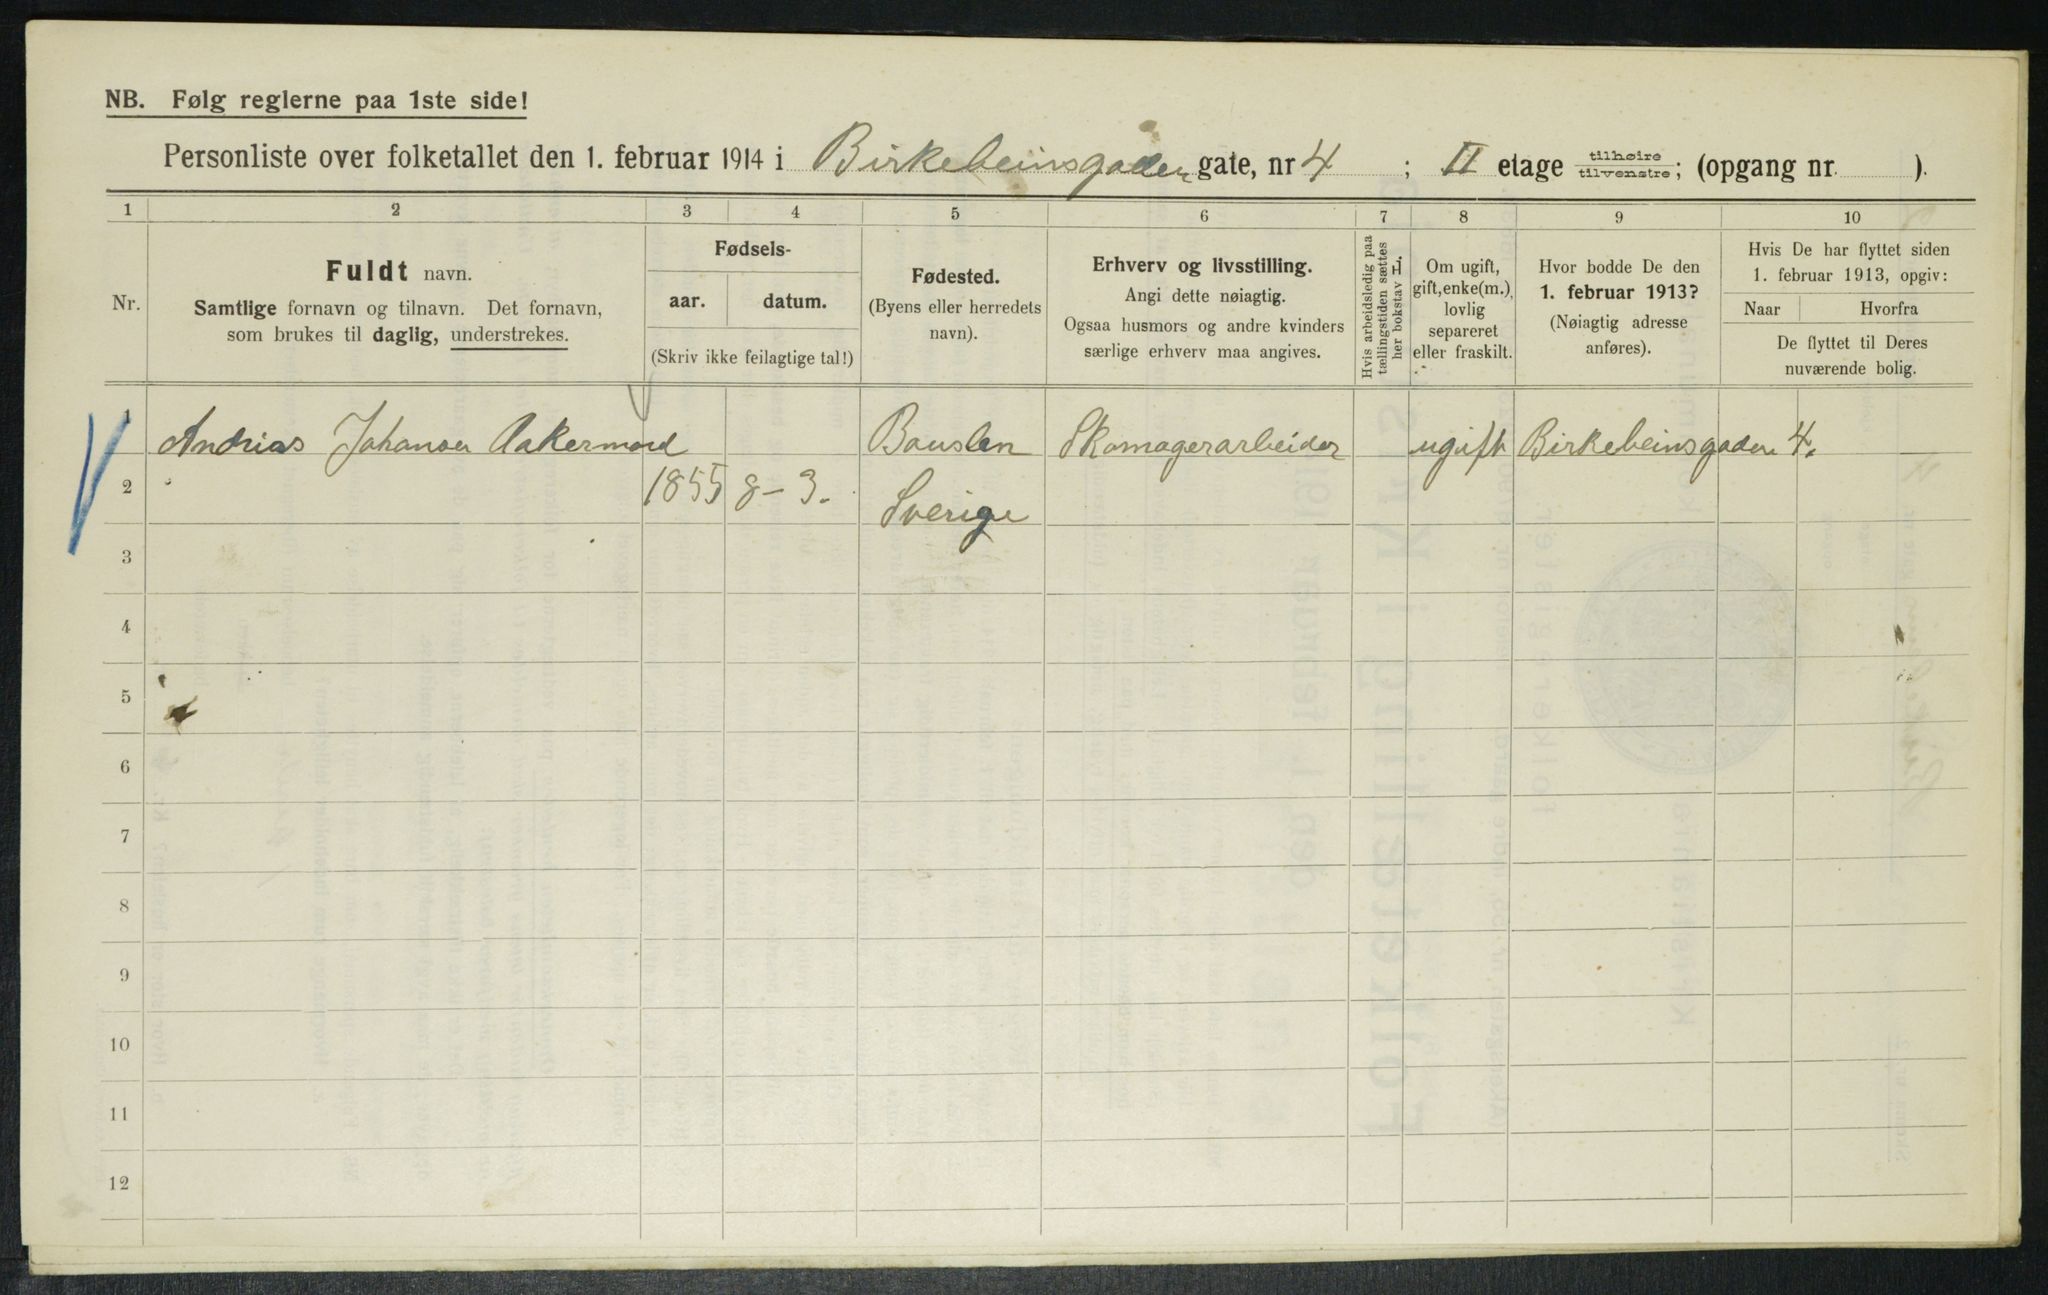 NB. Følg reglerne paa 1ste side!
Personliste over folketallet den 1. februar 1914 i Birkebeinsgaden gate, nr 4 ; II etage tilhøire tilvenstre; (opgang nr. ).
1 2 3 4 5 6 7 8 9 10
Nr.
Fuldt navn.
Samtlige fornavn og tilnavn. Det fornavn,
som brukes til daglig, understrekes.
Fødsels-
aar. datum.
(Skriv ikke feilagtige tal!)
Fødested.
(Byens eller herredets
navn).
Erhverv og livsstilling.
Angi dette nøiagtig.
Ogsaa husmors og andre kvinders
særlige erhverv maa angives.
Hvis arbeidsledig paa
tællingstiden sættes
her bokstav L.
Om ugift,
gift, enke(m.),
lovlig
separeret
eller fraskilt.
Hvor bodde De den
1. februar 1913?
(Nøiagtig adresse
anføres).
Hvis De har flyttet siden
1. februar 1913, opgiv:
Naar Hvorfra
De flyttet til Deres
nuværende bolig.
1 Andrias Johansen Aakermond Bouslen Skomagerarbeider ugift Birkebeinsgaden 4.
2 1855 8-3. Sverige
3
4
5
6
7
8
9
10
11
12